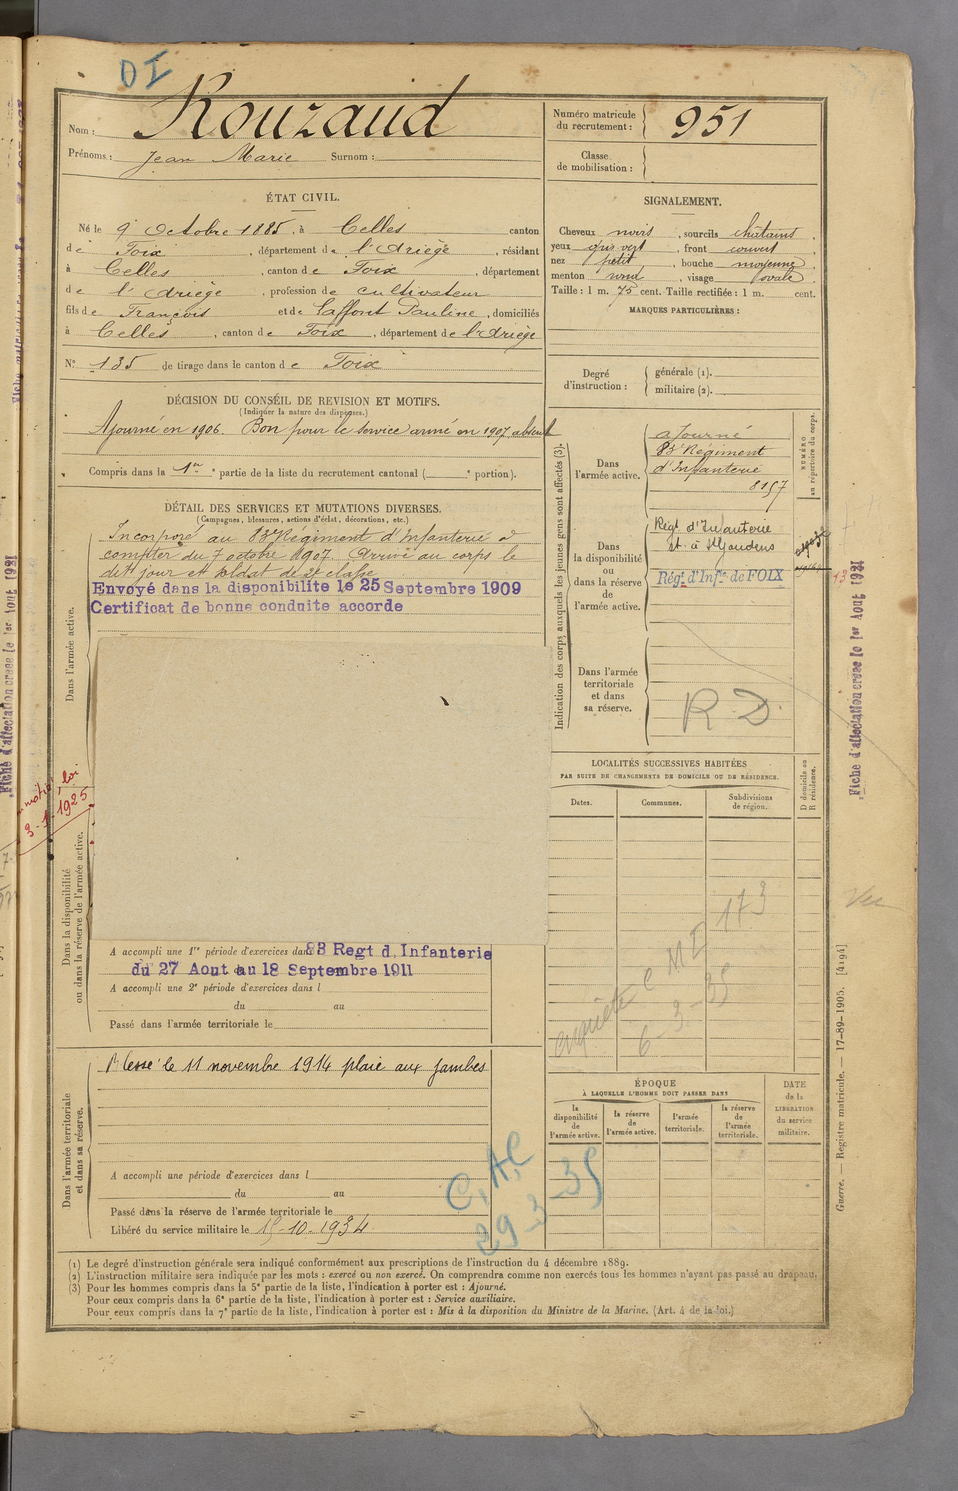 DI
Nom : Rouzaud
Prénoms : Jean Marie Surnom :
Numéro matricule du recrutement : 951
Classe de mobilisation :
ÉTAT CIVIL.
Né le 9 Octobre 1885, à Celles canton
de Foix, département de l'Ariège, résidant
à Celles, canton de Foix, département
de l'Ariège, profession de cultivateur
fils de François et de Laffont Pauline, domiciliés
à Celles, canton de Foix, département de l'Ariège
N° 135 de tirage dans le canton de Foix
SIGNALEMENT.
Cheveux noirs, sourcils châtains.
yeux gris vert, front couvert,
nez petit, bouche moyenne,
menton rond, visage ovale.
Taille : 1 m. 75 cent. Taille rectifiée : 1 m. cent.
MARQUES PARTICULIÈRES :
Degré d'instruction : générale (1).
militaire (2).
DÉCISION DU CONSEIL DE REVISION ET MOTIFS.
(Indiquer la nature des dispenses.)
Ajourné en 1906. Bon pour le service armé en 1907, absent
Compris dans la 1re partie de la liste du recrutement cantonal ( e portion).
DÉTAIL DES SERVICES ET MUTATIONS DIVERSES.
(Campagnes, blessures, actions d'éclat, décorations, etc.)
Dans l'armée active.
Incorporé au 83e Régiment d'Infanterie à
compter du 7 octobre 1907. Arrivé au corps le
dit jour et soldat de 2e classe
Envoyé dans la disponibilité le 25 Septembre 1909
Certificat de bonne conduite accorde
Dans la disponibilité
ou dans la réserve de l'armée active.
loi
3-1-1925
A accompli une 1re période d'exercices dans 83 Regt d, Infanterie
du 27 Aout au 18 Septembre 1911
A accompli une 2e période d'exercices dans l
du au
Passé dans l'armée territoriale le
Dans l'armée territoriale
et dans sa réserve.
Blessé le 11 novembre 1914 plaie aux jambes
A accompli une période d'exercices dans l
du au
Passé dans la réserve de l'armée territoriale le
Libéré du service militaire le 15-10-1934
C.A.C
29-3-35
Indication des corps auxquels les jeunes gens sont affectés (3).
NUMÉRO
au répertoire du corps.
Dans l'armée active.
ajourné
83e Régiment
d'Infanterie
8157
Dans la disponibilité ou dans la réserve de l'armée active.
Régt d'Infanterie
St Gaudens
Régt d'Infie de FOIX
Dans l'armée territoriale et dans sa réserve.
R D
LOCALITÉS SUCCESSIVES HABITÉES
PAR SUITE DE CHANGEMENTS DE DOMICILE OU DE RÉSIDENCE.
Dates. Communes. Subdivisions de région.
D domicile ou
R résidence.
enquête C M I 173
6-3-35
ÉPOQUE
À LAQUELLE L'HOMME DOIT PASSER DANS
la disponibilité de l'armée active.
la réserve de l'armée active.
l'armée territoriale.
la réserve de l'armée territoriale.
DATE de la LIBÉRATION du service militaire.
Fiche d'affectation créée le 1er Aout 1921
Fiche d'affectation créée le 1er Aout 1921
Vu
Guerre. — Registre matricule. — 17-89-1905. [4194]
(1) Le degré d'instruction générale sera indiqué conformément aux prescriptions de l'instruction du 4 décembre 1889.
(2) L'instruction militaire sera indiquée par les mots : exercé ou non exercé. On comprendra comme non exercés tous les hommes n'ayant pas passé au drapeau.
(3) Pour les hommes compris dans la 5e partie de la liste, l'indication à porter est : Ajourné.
Pour ceux compris dans la 6e partie de la liste, l'indication à porter est : Service auxiliaire.
Pour ceux compris dans la 7e partie de la liste, l'indication à porter est : Mis à la disposition du Ministre de la Marine. (Art. 4 de la loi.)